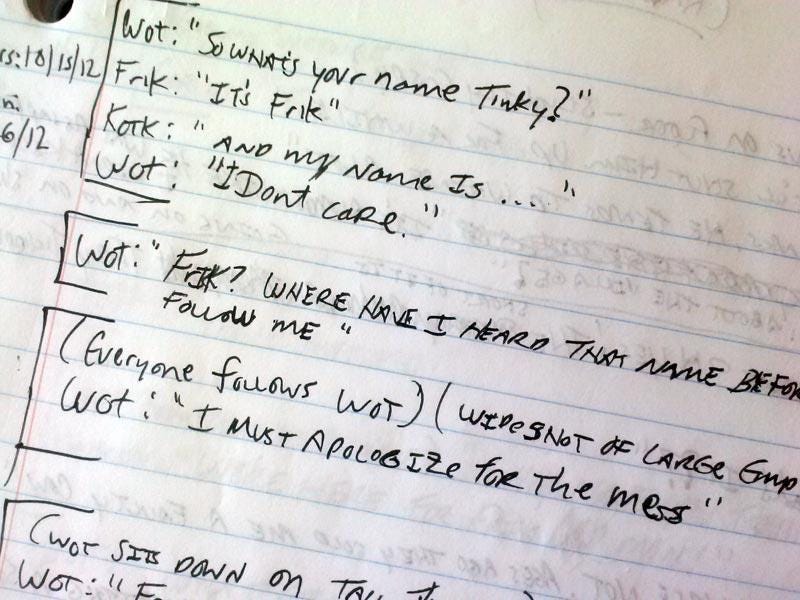 Wot: "So what's your name Tinky?"
Frik: "It's Frik"
Kotk: "And my name is ..."
Wot: "I Dont care."
Wot: "Frik? Where have I heard that name
follow me"
(Everyone follows Wot) (Wide snot of large
Wot: "I must apologize for the mess"
(Wot sits down on
Wot: "
:10/15/12
6/12